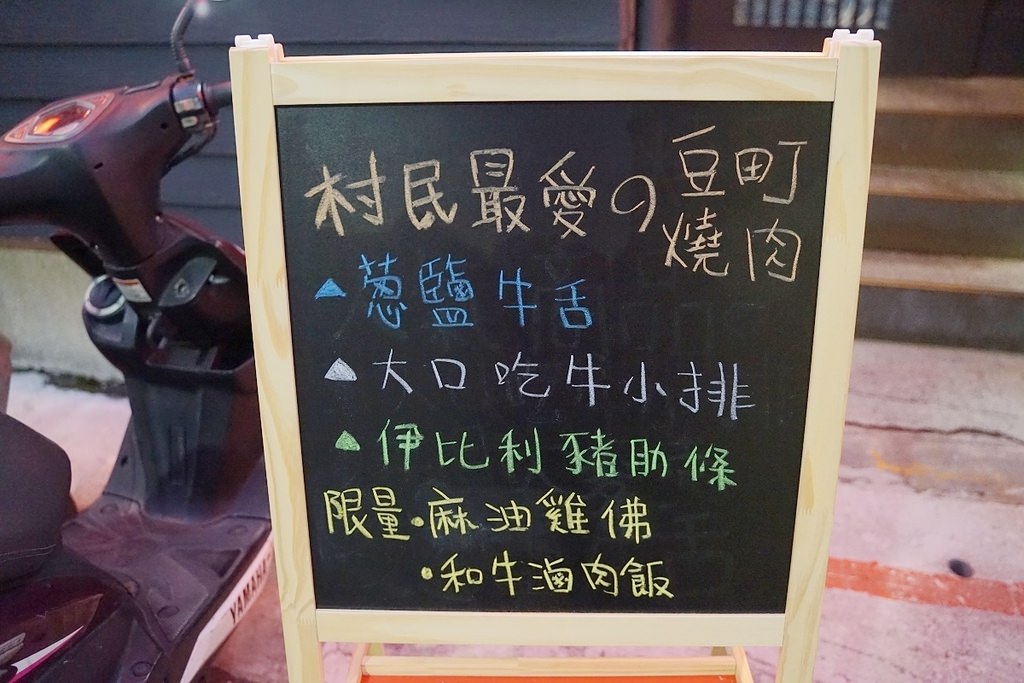 村民最愛の豆町燒肉
▲蔥鹽牛舌
▲大口吃牛小排
▲伊比利豬助條
限量・麻油雞佛
・和牛滷肉飯
YAMAHA